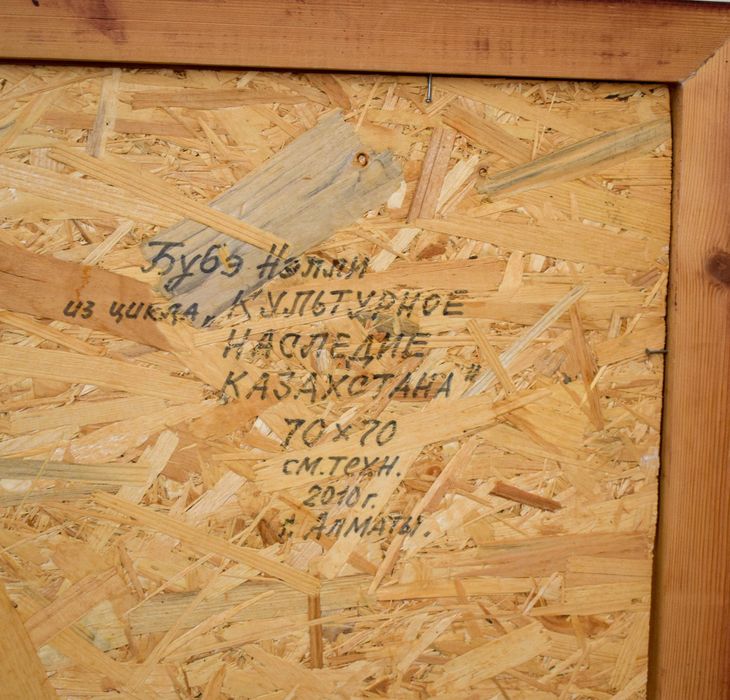 Бубэ Нэлли
из цикла „КУЛЬТУРНОЕ
НАСЛЕДИЕ
КАЗАХСТАНА"
70×70
см. техн.
2010 г.
г. АЛМАТЫ.